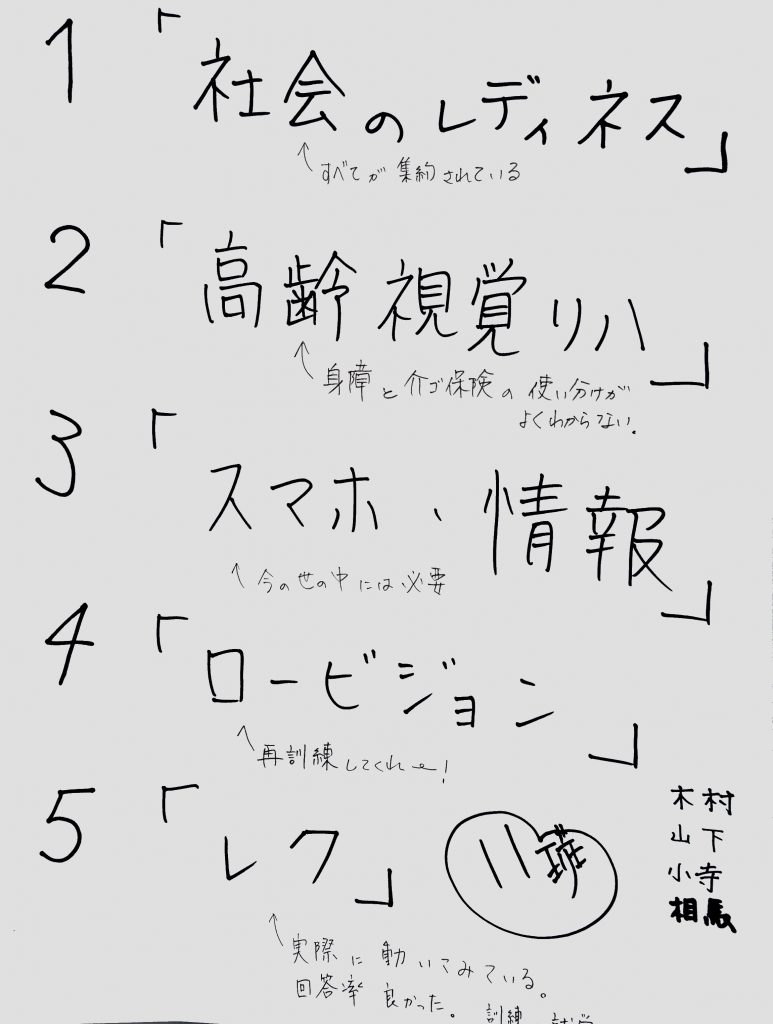 1 「社会のレディネス」
↑すべてが集約されている
2 「高齢視覚リハ」
↑身障と介ゴ保険の使い分けが
よくわからない.
3 「スマホ、情報」
↑今の世の中には必要
4 「ロービジョン」
↑再訓練してくれー!
5 「レク」
11班
木村
山下
小寺
相馬
↑実際に動いてみている。
回答率良かった。訓練